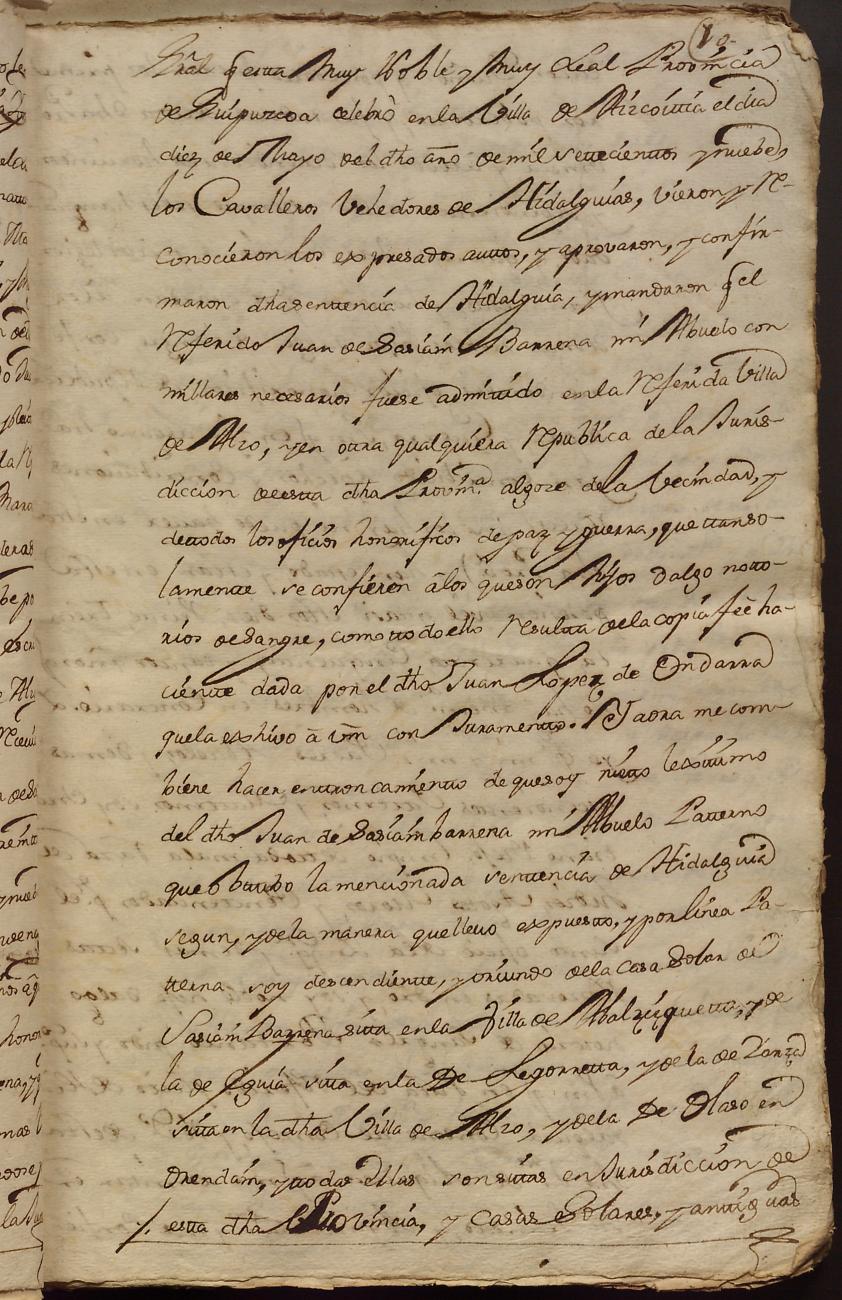 10
Gral q̃ esta Muy Noble y Muy Leal Provincia
de Guipuzcoa celebró en la Villa de Aizcoittia el dia
diez de Mayo del dho año de mil settecienttos y nuebe,
los Cavalleros Vehedores de Hidalguias, vieron y Re-
conocieron los expresados auttos, y aprovaron, y confir-
maron dha senttencia de Hidalguia, y mandaron q̃ el
Referido Juan de Sasiam Barrena mi Abuelo con
millares necesarios fuese admittido en la Referida Villa
de Alzo, y en ottra qualquiera Republica de la Juris-
diccion de estta dha Provinᵃ al goze de la Vecindad, y
de ttodos los oficios honorificos de paz y guerra, que ttan so-
lamentte se confieren â los que son Hijos dalgo notto-
rios de Sangre, como ttodo ello Resultta de la copia feê ha-
cientte dada por el dho Juan Lopez de Ondarra
que la exhivo â Vm con Juramentto. Y aora me com-
biene hacer enttroncamientto de que soy nietto lexittimo
del dho Juan de Sasiam barrena mi Abuelo Patterno
que obttubo la mencionada senttencia de Hidalguia
segun, y de la manera que llevo expuestto, y por linea Pa-
tterna soy descendientte, y oriundo de la Casa Solar de
Sasiam Barrena sitta en la Villa de Abalzizquetta, y de
la de Eguia sitta en la De Legorretta, y de la de
sitta en la dha Villa de Alzo, y de la De Olaso en
Orendain, y ttodas Ellas son sittas en Jurisdiccion de
estta dha Provincia, y Casas Solares, y anttiguas